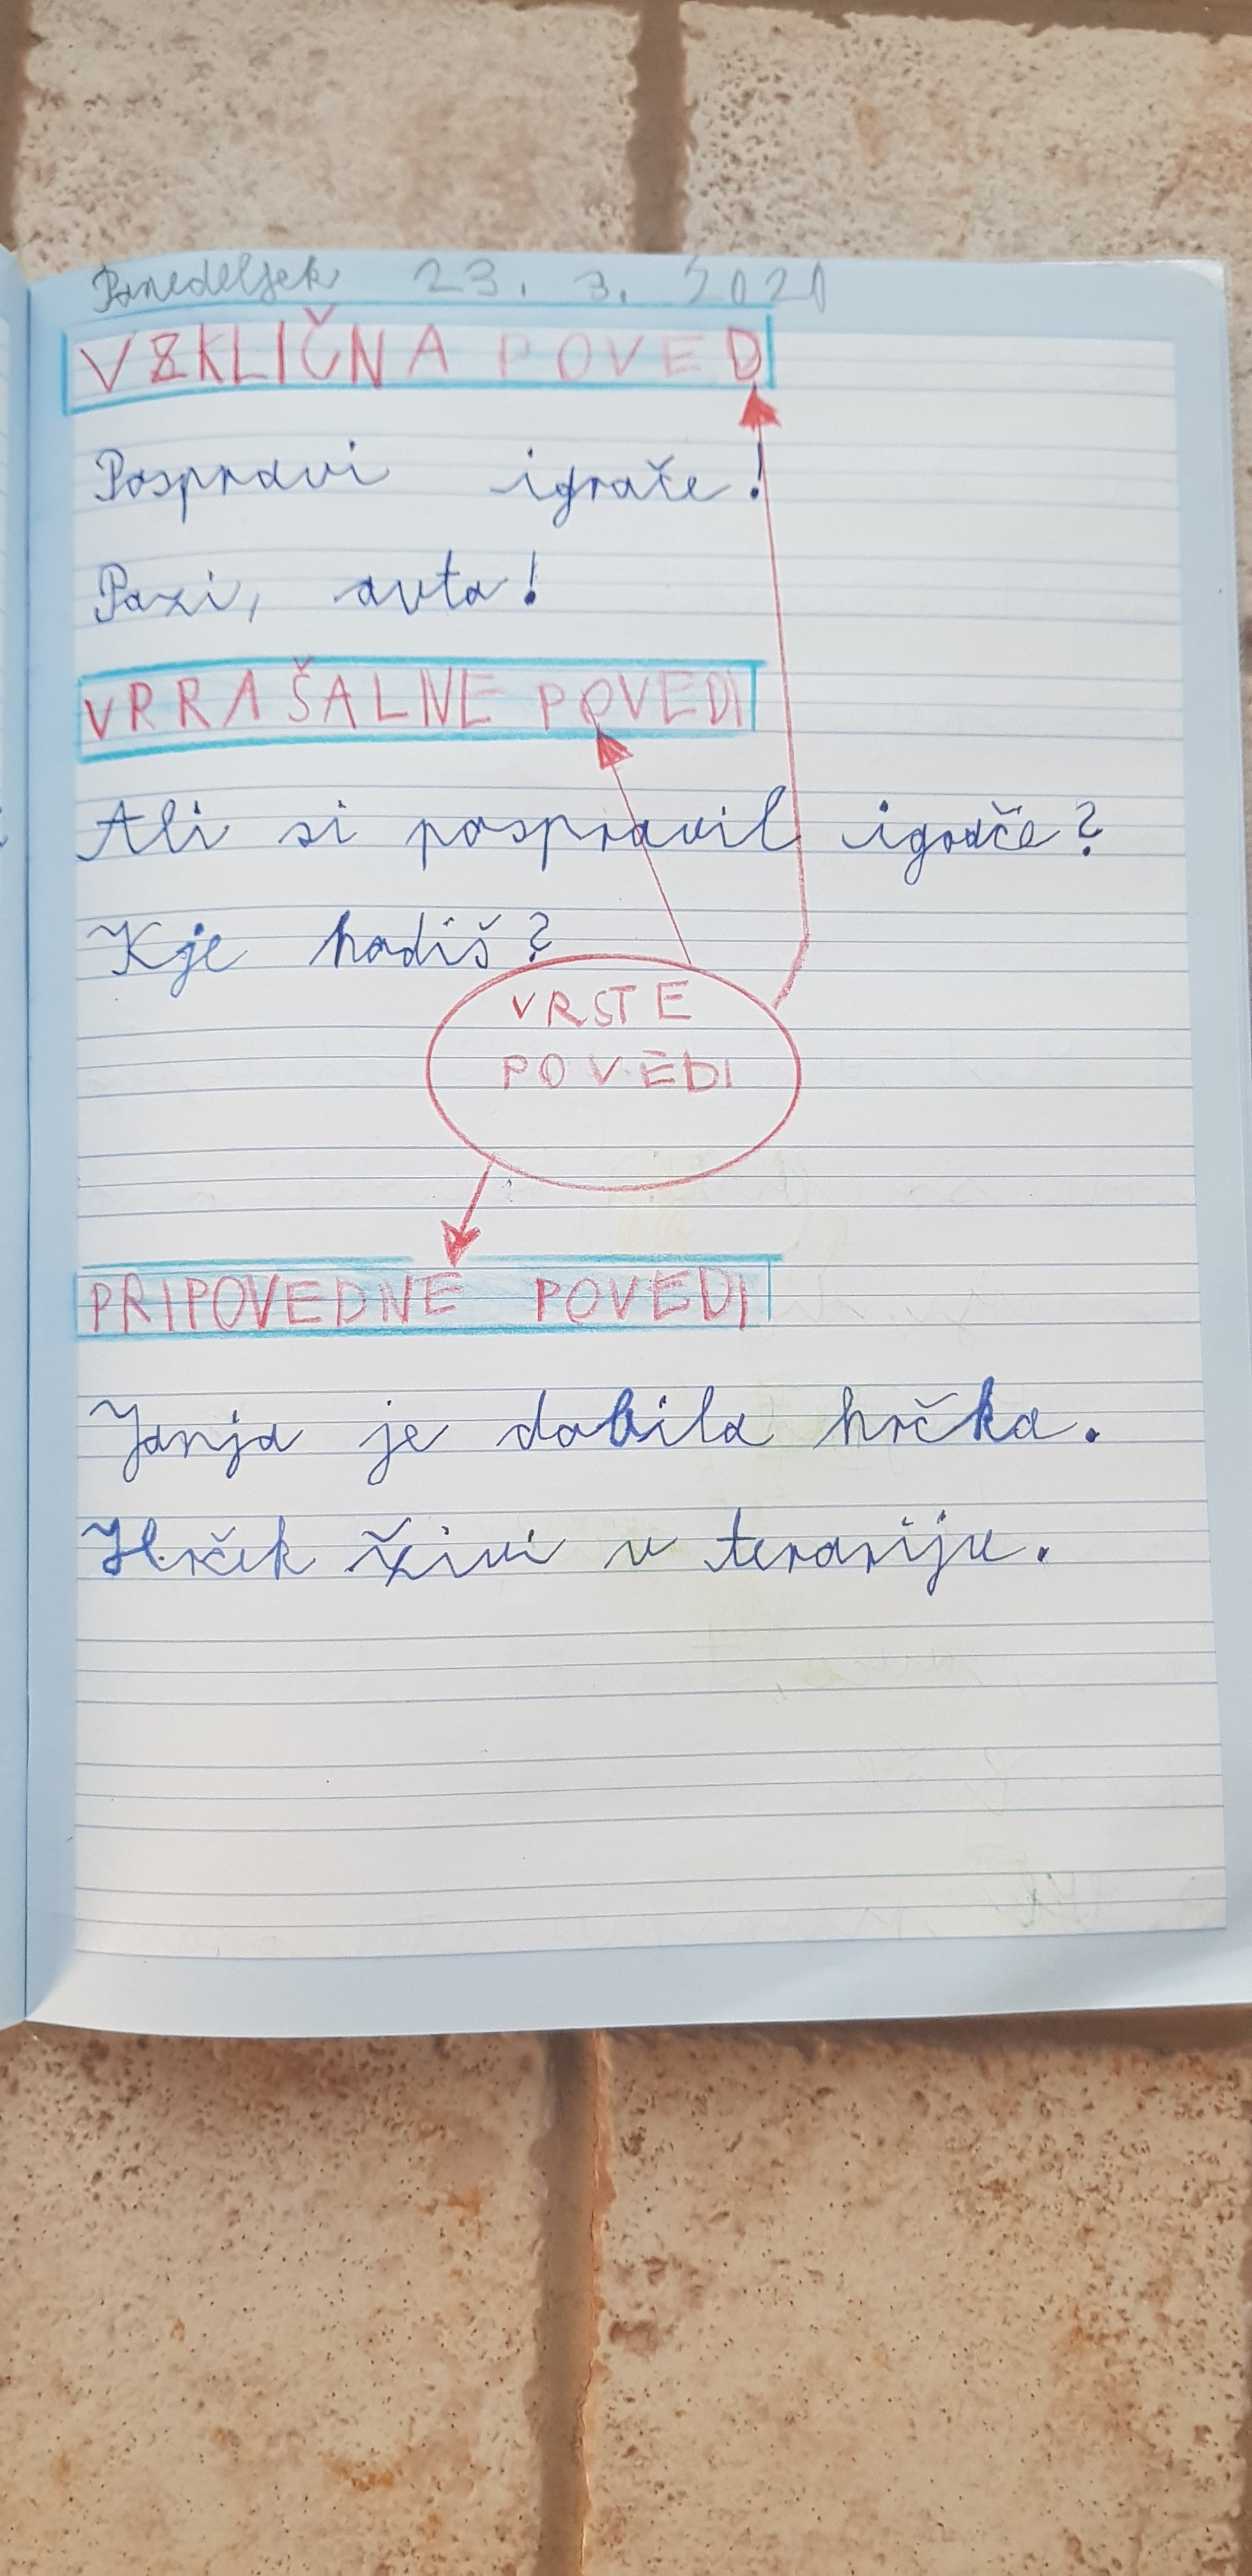 Ponedeljek 23. 3. 2020
VZKLIČNA POVED
Pospravi igrače!
Pazi, avto!
VRRAŠALNE POVEDI
Ali si pospravil igrače?
Kje hodiš?
VRSTE
POVEDI
PRIPOVEDNE POVEDI
Janja je dobila hrčka.
Hrček živi v terariju.